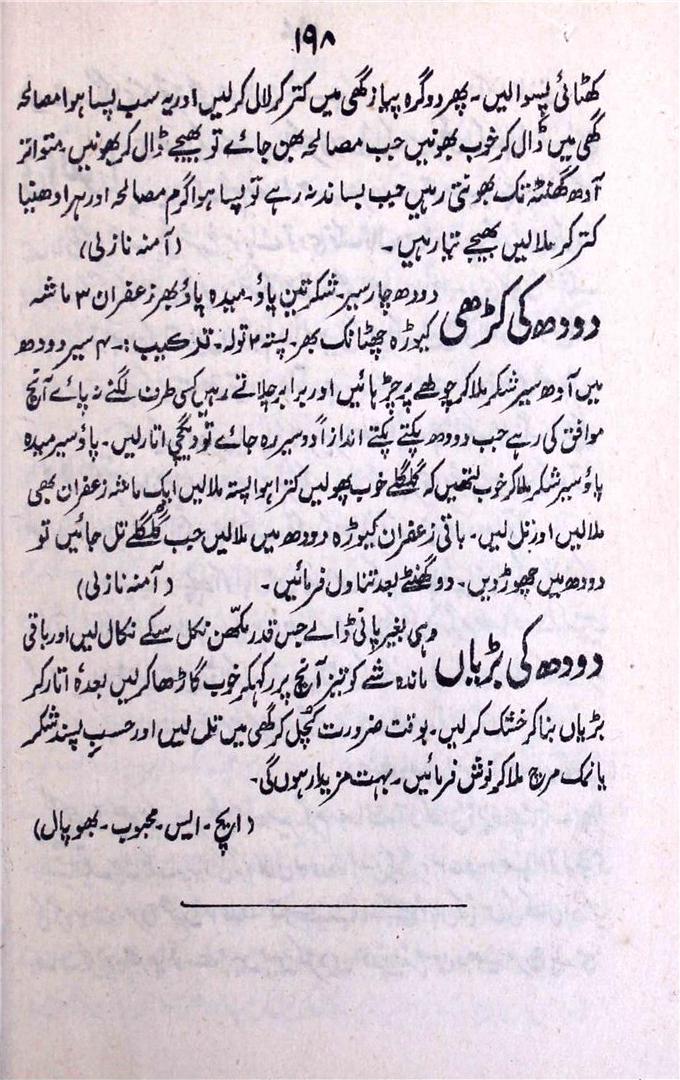 ۱۹۸
کھٹائی پسوالیں۔ پھر دو گرہ پیاز گھی میں کتر کر لال کرلیں اور یہ سب پسا ہوا مصالحہ
گھی میں ڈال کر خوب بھونیں جب مصالحہ بھن جائے تو بھیجے ڈال کر بھونیں۔ متواتر
آدھ گھنٹہ تک بھونتی رہیں جب بساند نہ رہے تو پسا ہوا گرم مصالحہ اور ہرا دھنیا
کتر کر ملالیں بھیجے تیار ہیں۔ (آمنہ نازلی)
دودھ کی کڑھی دودھ چار سیر۔ شکر تین پاؤ۔ میدہ پاؤ بھر زعفران ۳ ماشہ
کیوڑہ چھٹانک بھر۔ پستہ ۲ تولہ۔ ترکیب :۔ ۴ سیر دودھ
میں آدھ سیر شکر ملا کر چولھے پر چڑہائیں اور برابر چلاتے رہیں کسی طرف لگنے نہ پائے آنچ
موافق کی رہے جب دودھ پکتے پکتے اندازاً دو سیر رہ جائے تو دیگچی اتار لیں۔ پاؤ سیر میدہ
پاؤ سیر شکر ملا کر خوب لتھیں کہ گلگلے خوب پھولیں کترا ہوا پستہ ملالیں ایک ماشہ زعفران بھی
ملالیں اور تل لیں۔ باقی زعفران کیوڑہ دودھ میں ملالیں جب گلگلے تل جائیں تو
دودھ میں چھوڑ دیں۔ دو گھنٹے بعد تناول فرمائیں۔ (آمنہ نازلی)
دودھ کی بڑیاں دہی بغیر پانی ڈالے جس قدر مکھن نکل سکے نکال لیں اور باقی
ماندہ شے کو تیز آنچ پر رکہکر خوب گاڑھا کرلیں بعدہٗ اتار کر
بڑیاں بنا کر خشک کرلیں۔ بوقت ضرورت کچل کر گھی میں تل لیں اور حسب پسند شکر
یا نمک مرچ ملا کر نوش فرمائیں۔ بہت مزیدار ہوں گی۔
(ایچ۔ ایس۔ محبوب۔ بھوپال)